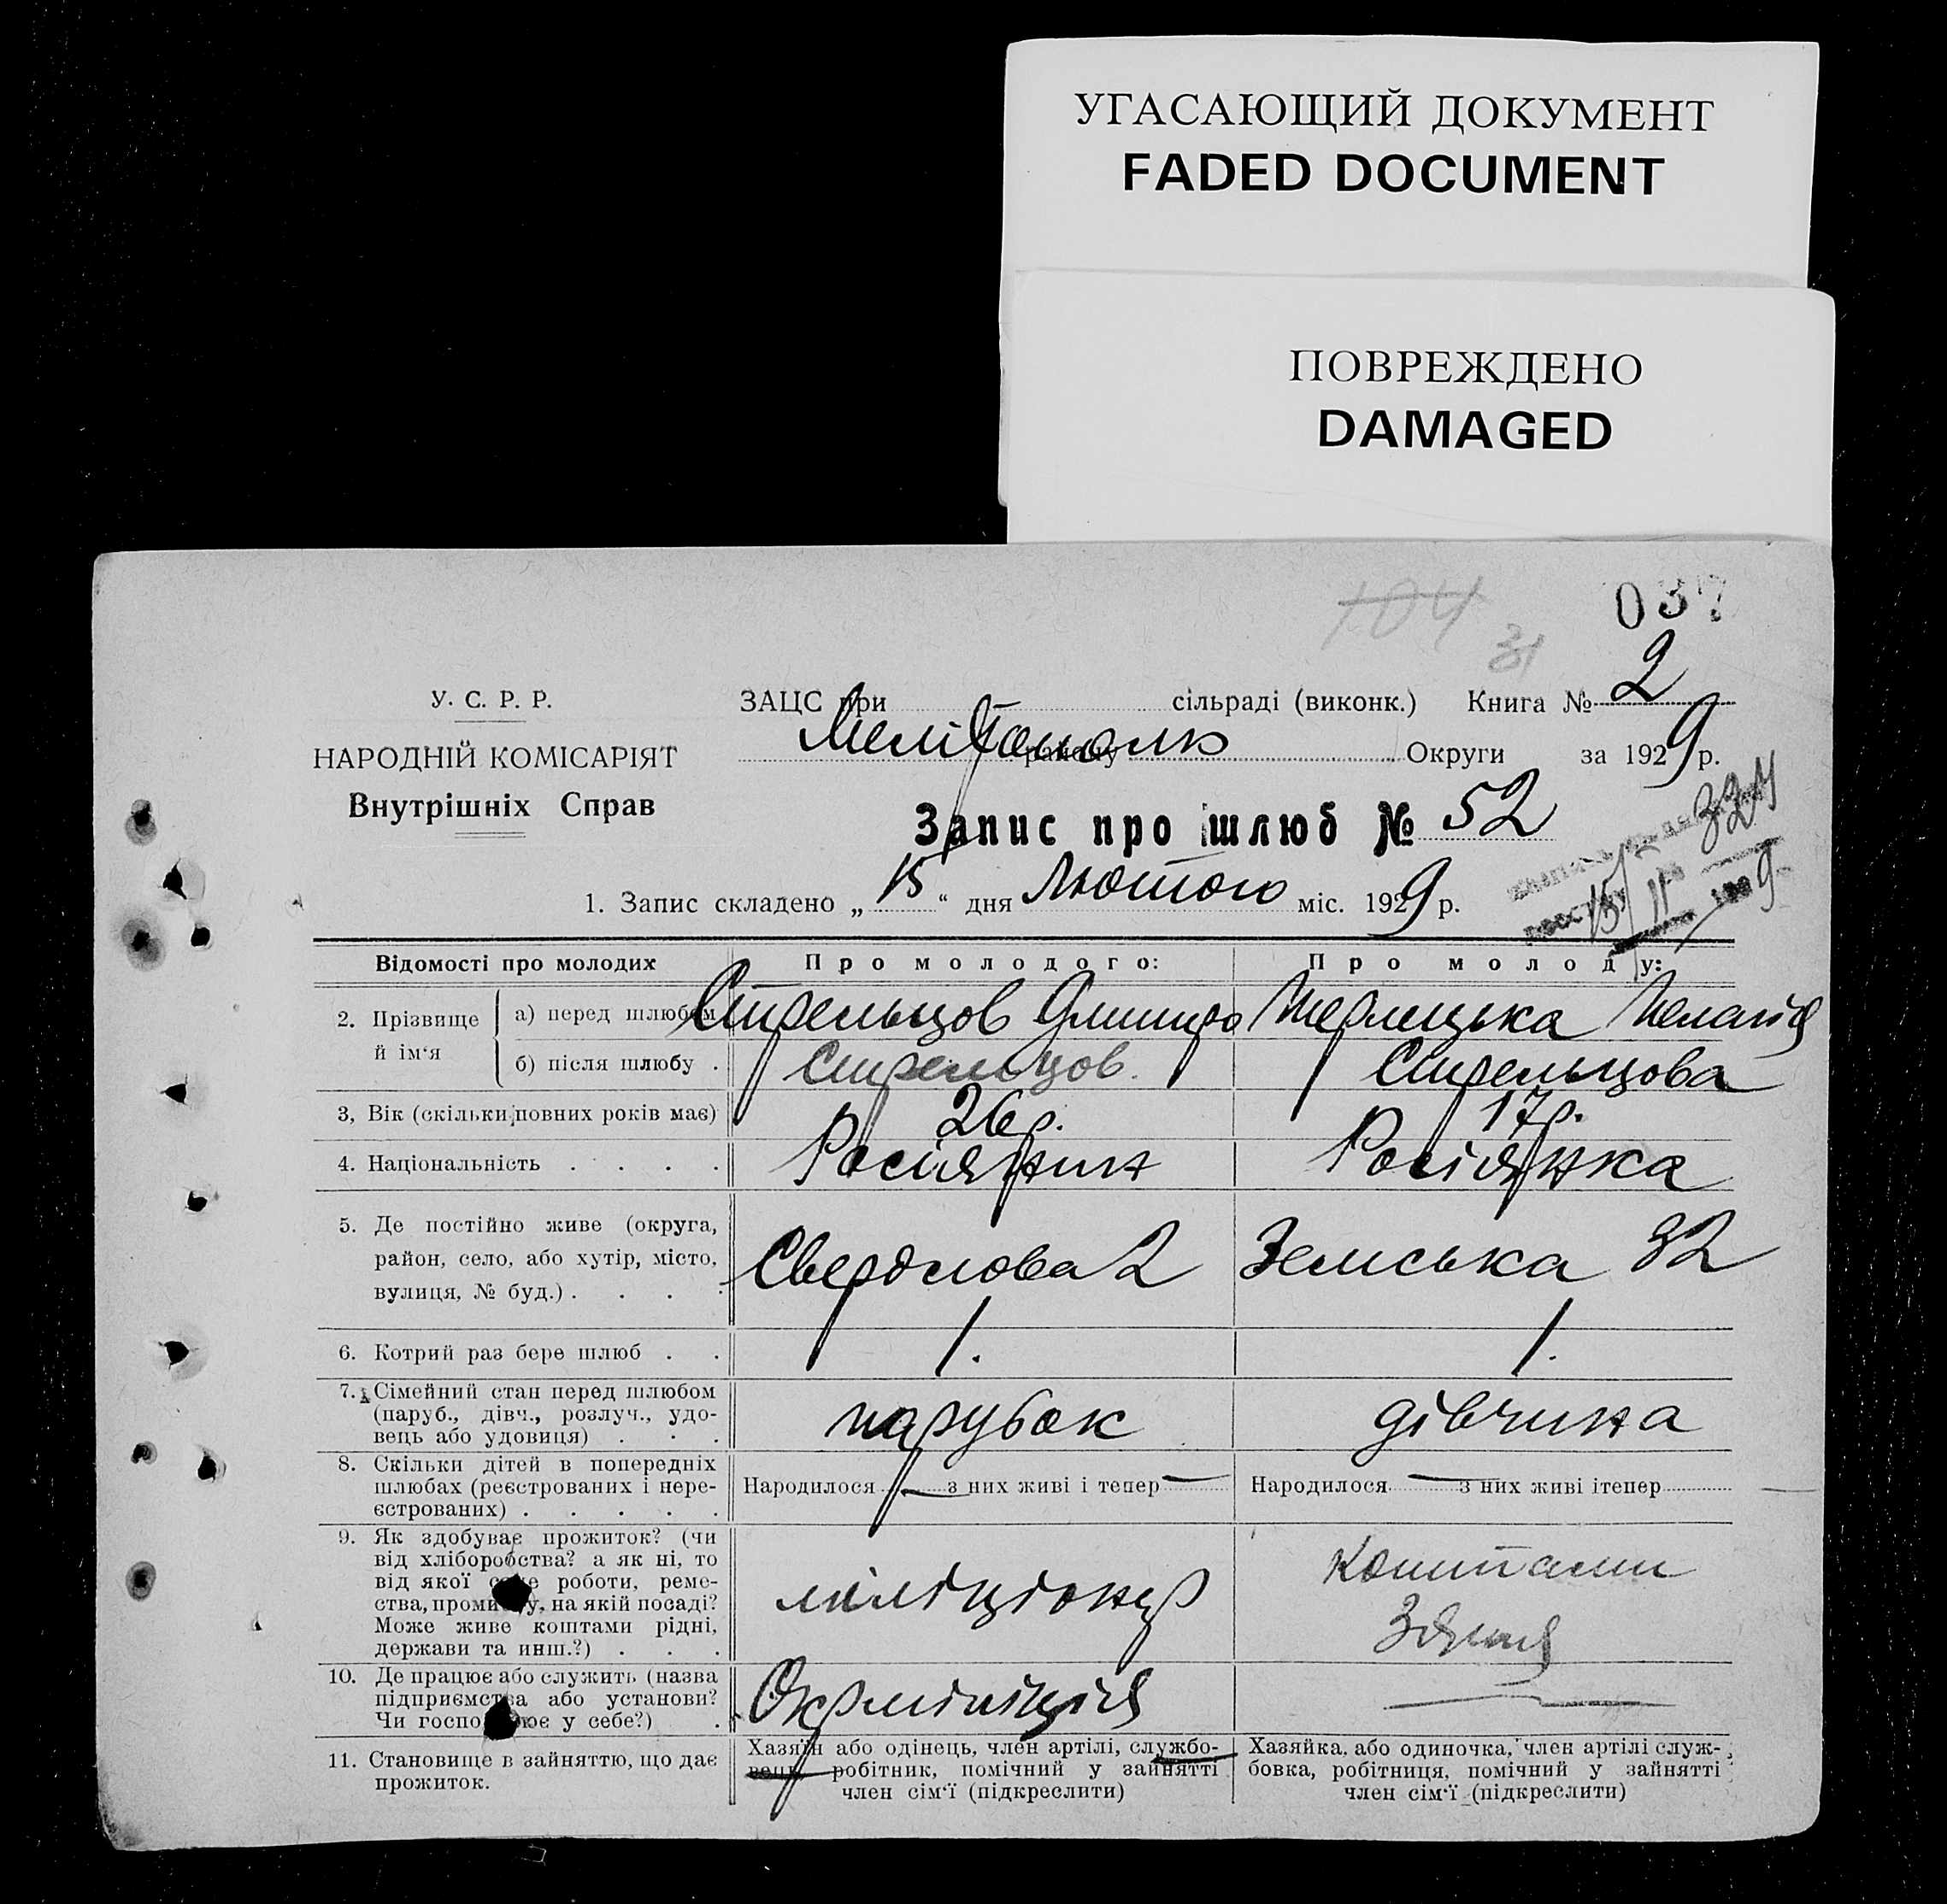 УГАСАЮЩИЙ ДОКУМЕНТ
FADED DOCUMENT
ПОВРЕЖДЕНО
DAMAGED
104
31
037
У. С. Р. Р.
НАРОДНІЙ КОМІСАРІЯТ
Внутрішніх Справ
ЗАЦС при сільраді (виконк.) Книга № 2
Мелітополь району Округи за 1929 р.
Запис про шлюб № 52
1. Запис складено „15“ дня Лютого міс. 1929 р.
Відомості про молодих Про молодого: Про молоду:
2. Прізвище й ім‘я
а) перед шлюбом Стрельцов Дмитро Терлецька Пелагія
б) після шлюбу . Стрельцов. Стрельцова
3, Вік (скільки повних років має) 26 р. 17 р.
4. Національність . . . . Росіянин Росіянка
5. Де постійно живе (округа,
район, село, або хутір, місто,
вулиця, № буд.) . . . .
Свердлова 2 Земська 32
6. Котрий раз бере шлюб . . 1. 1.
7. Сімейний стан перед шлюбом
(паруб., дівч., розлуч., удо-
вець або удовиця) . . .
парубок дівчина
8. Скільки дітей в попередніх
шлюбах (реєстрованих і нере-
єстрованих) . . . . .
Народилося — з них живі і тепер — Народилося — з них живі ітепер —
9. Як здобуває прожиток? (чи
від хліборобства? а як ні, то
від якої роботи, реме-
ства, на якій посаді?
Може живе коштами рідні,
держави та инш.?) . . .
міліціонер
Коштами
10. Де працює або служить (назва
підприємства або установи?
Чи у себе?) .
Окрміліція —
11. Становище в зайняттю, що дає
прожиток.
Хазяїн або одінець, член артілі, службо-
вець, робітник, помічний у зайнятті
член сім‘ї (підкреслити)
Хазяйка, або одиночка, член артілі служ-
бовка, робітниця, помічний у зайнятті
член сім‘ї (підкреслити)